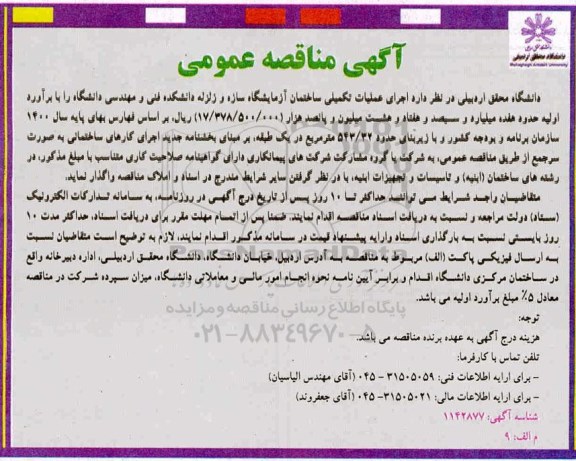 دانشگاه محقق اردبیلی
Mohaghegh Ardabili University
آگهی مناقصه عمومی
دانشگاه محقق اردبیلی در نظر دارد اجرای عملیات تکمیلی ساختمان آزمایشگاه سازه و زلزله دانشکده فنی و مهندسی دانشگاه را با برآورد
اولیه حدود هفده میلیارد و سیصد و هفتاد و هشت میلیون و پانصد هزار (۱۷/۳۷۸/۵۰۰/۰۰۰) ریال، بر اساس فهارس بهای پایه سال ۱۴۰۰
سازمان برنامه و بودجه کشور و با زیربنای حدود ۵۴۳/۳۲ مترمربع در یک طبقه، بر مبنای بخشنامه جدید اجرای کارهای ساختمانی به صورت
سرجمع از طریق مناقصه عمومی، به شرکت یا گروه مشارکت شرکت های پیمانکاری دارای گواهینامه صلاحیت کاری متناسب با مبلغ مذکور، در
رشته های ساختمان (ابنیه) و تاسیسات و تجهیزات ابنیه، با در نظر گرفتن سایر شرایط مندرج در اسناد و املاک مناقصه واگذار نماید.
متقاضیان واجد شرایط می توانند حداکثر تا ۱۰ روز پس از تاریخ درج آگهی در روزنامه، به سامانه تدارکات الکترونیک
(ستاد) دولت مراجعه و نسبت به دریافت اسناد مناقصه اقدام نمایند. ضمنا پس از اتمام مهلت مقرر برای دریافت اسناد، حداکثر مدت ۱۰
روز بایستی نسبت به بارگذاری اسناد وارایه پیشنهاد قیمت در سامانه مذکور اقدام نمایند. لازم به توضیح است متقاضیان نسبت
به ارسال فیزیکی پاکت (الف) مربوط به مناقصه به آدرس اردبیل خیابان دانشگاه، دانشگاه محقق اردبیلی، اداره دبیرخانه واقع
در ساختمان مرکزی دانشگاه اقدام و برابر آیین نامه نحوه انجام امور مالی و معاملاتی دانشگاه، میزان سپرده شرکت در مناقصه
معادل ۵٪ مبلغ برآورد اولیه می باشد.
پایگاه اطلاع رسانی مناقصه و مزایده
توجه:
۰۲۱-۸۸۳۴۹۶۷۰-۵
هزینه درج آگهی به عهده برنده مناقصه می باشد.
تلفن تماس با کارفرما:
- برای ارایه اطلاعات فنی: ۳۱۵۰۵۰۵۹-۰۴۵ (آقای مهندس الیاسیان)
- برای ارایه اطلاعات مالی: ۳۱۵۰۵۰۲۱-۰۴۵ (آقای جعفروند)
شناسه آگهی: ۱۱۴۲۸۷۷
م الف: ۹